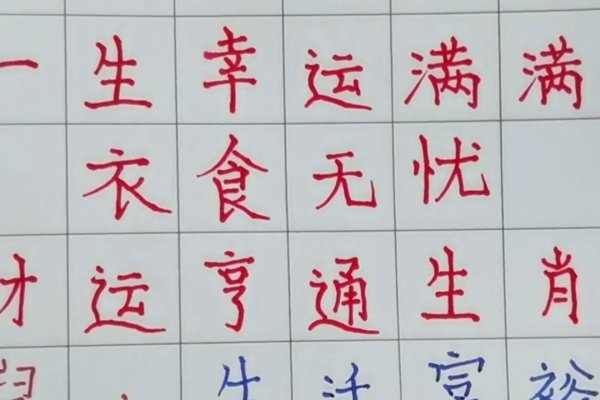 一生幸运满满
衣食无忧
财运亨通生肖
生活富裕